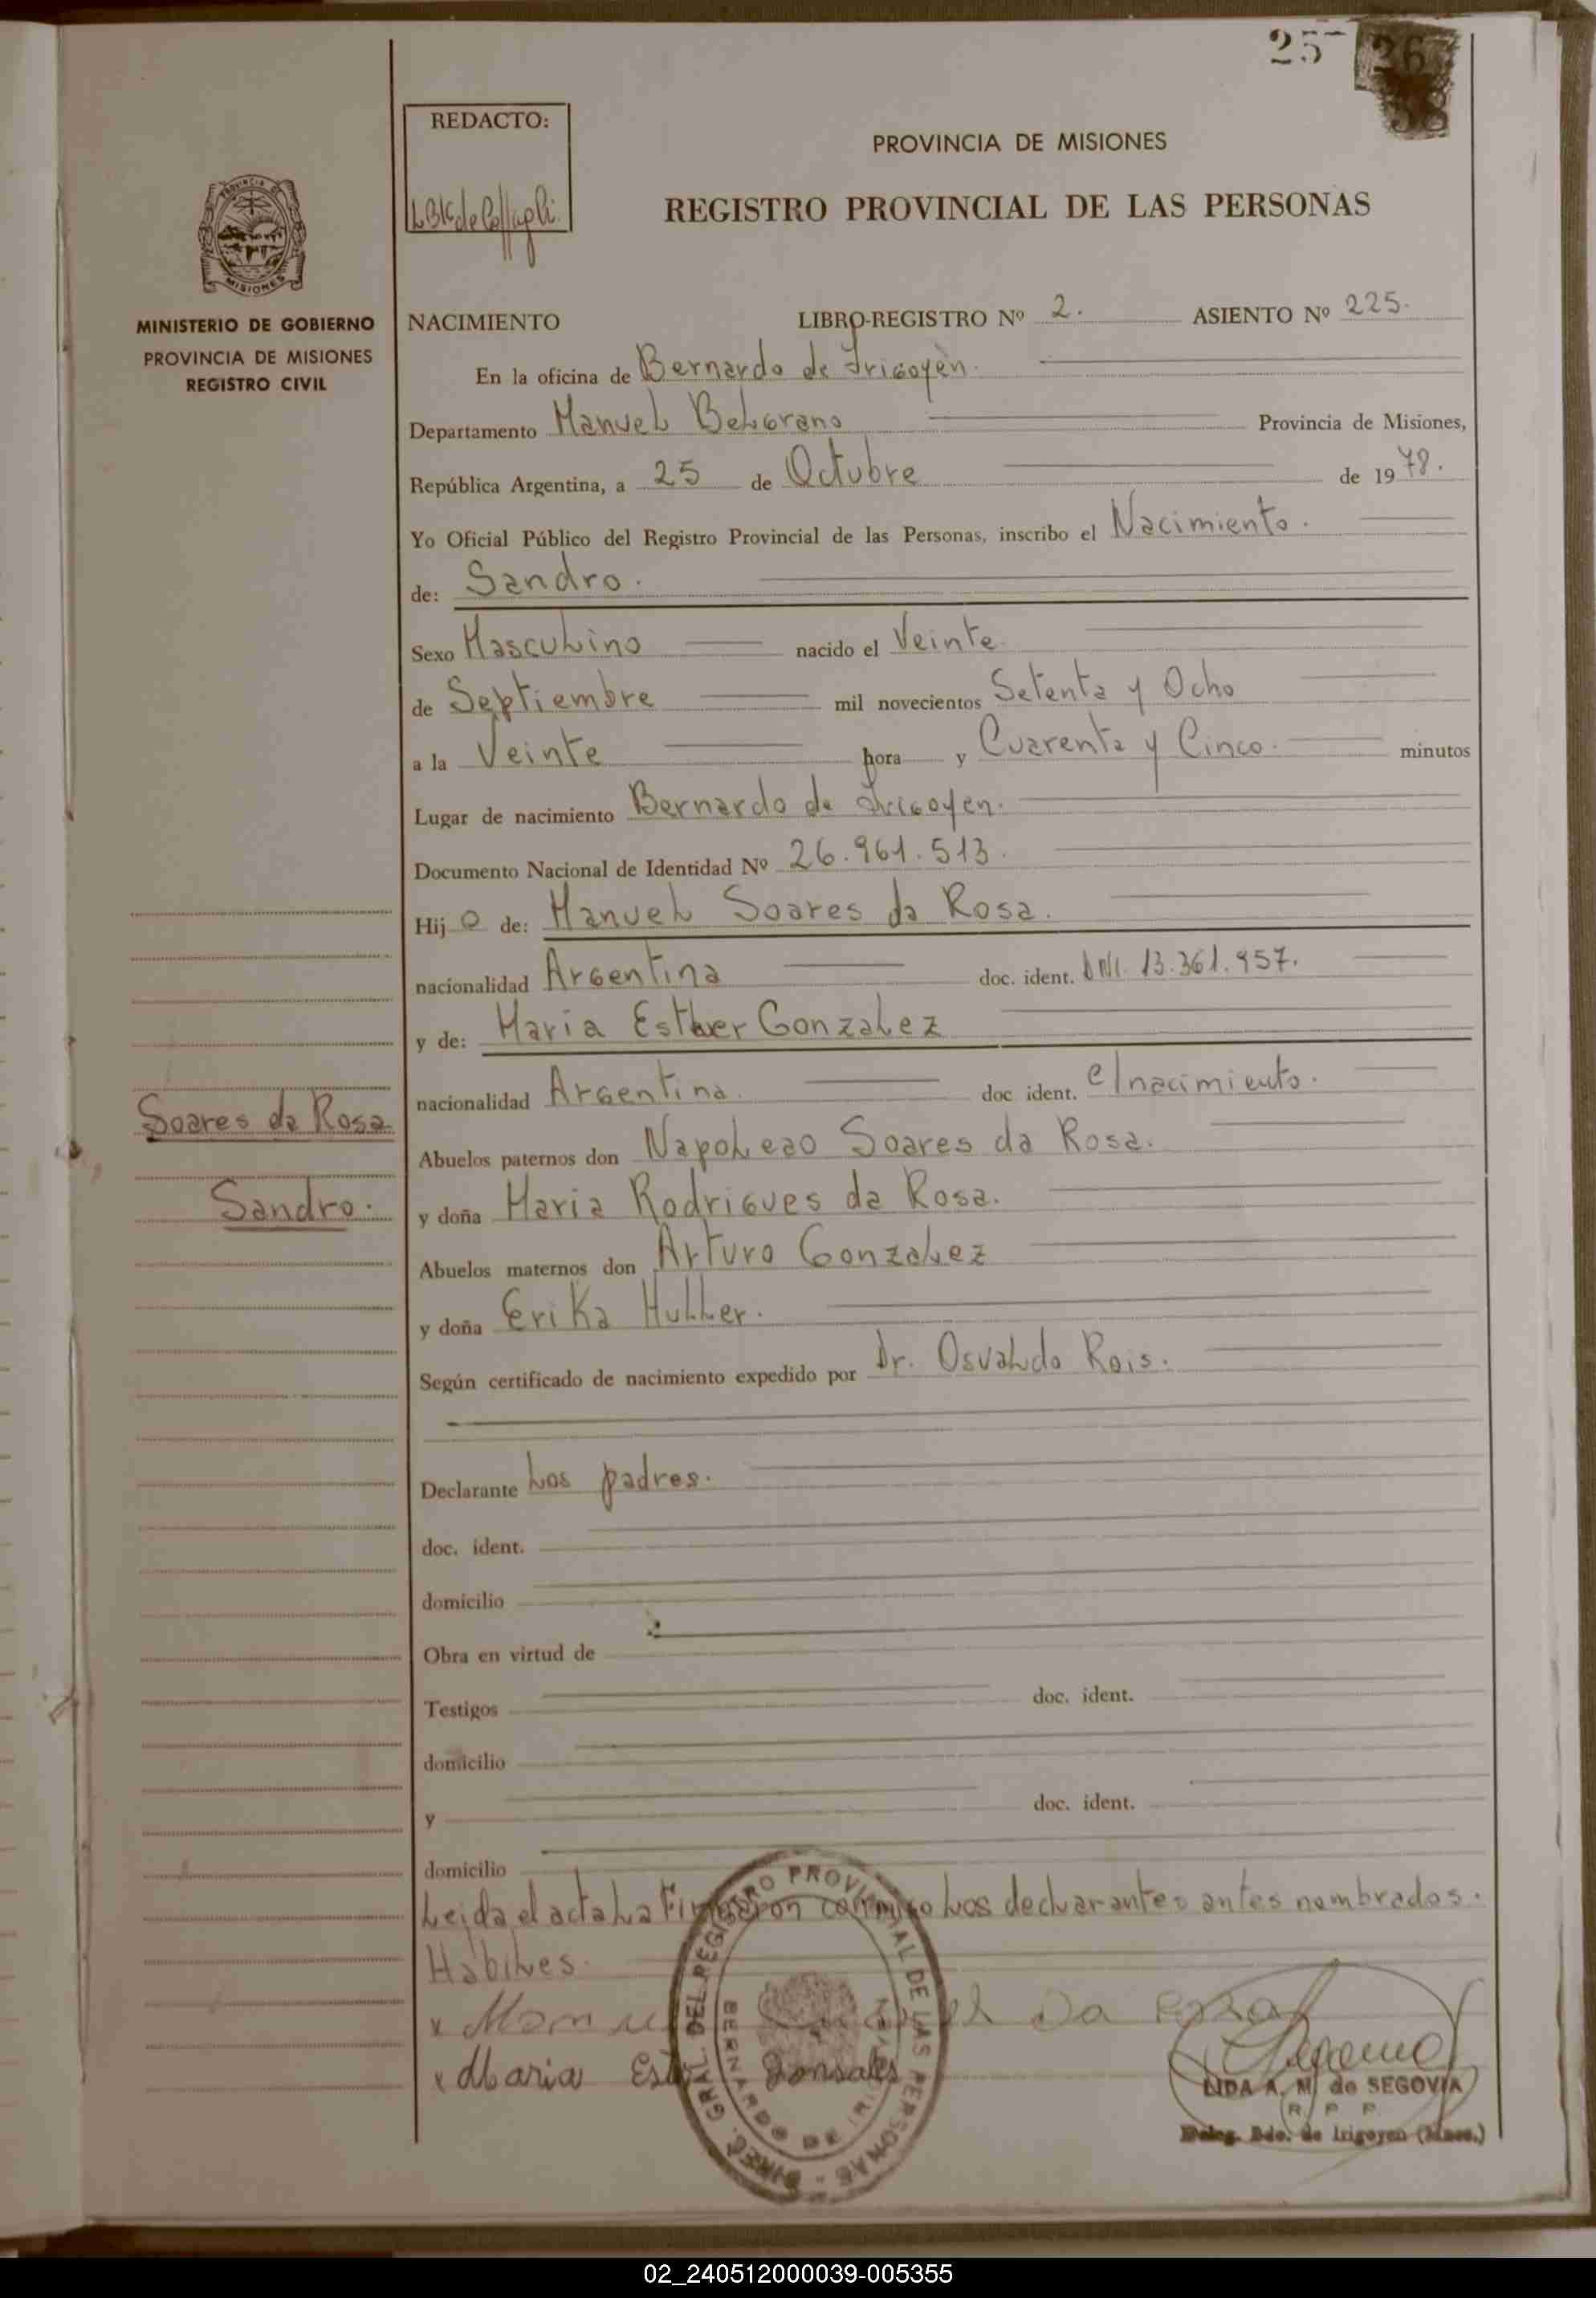 25
26
38
REDACTO:
PROVINCIA DE MISIONES
REGISTRO PROVINCIAL DE LAS PERSONAS
PROVINCIA DE
MISIONES
MINISTERIO DE GOBIERNO
PROVINCIA DE MISIONES
REGISTRO CIVIL
NACIMIENTO LIBRO-REGISTRO Nº 2. ASIENTO Nº 225.
En la oficina de Bernardo de Irigoyen.
Departamento Manuel Belgrano Provincia de Misiones,
República Argentina, a 25 de Octubre de 1978.
Yo Oficial Público del Registro Provincial de las Personas, inscribo el Nacimiento.
de: Sandro.
Sexo Masculino nacido el Veinte
de Septiembre mil novecientos Setenta y Ocho
a la Veinte hora y Cuarenta y Cinco. minutos
Lugar de nacimiento Bernardo de Irigoyen.
Documento Nacional de Identidad Nº 26.961.513.
Hijo de: Manuel Soares da Rosa.
nacionalidad Argentina doc. ident. DNI. 13.361.957.
y de: Maria Esther Gonzalez
nacionalidad Argentina. doc ident. C/nacimiento.
Soares da Rosa
Sandro.
Abuelos paternos don Napoleao Soares da Rosa.
y doña Maria Rodrigues da Rosa.
Abuelos maternos don Arturo Gonzalez
y doña Erika Huller.
Según certificado de nacimiento expedido por Dr. Osvaldo Rois.
Declarante Los padres.
doc. ident.
domicilio
Obra en virtud de
Testigos doc. ident.
domicilio
y doc. ident.
domicilio
Leida el acta la Firmaron conmigo los declarantes antes nombrados.
Habiles.
x Manuel da Rosa
x Maria Est Gonsales
DIREC. GRAL. DEL REGISTRO PROVINCIAL DE LAS PERSONAS
BERNARDO DE IRIGOYEN
LIDA A. M. de SEGOVIA
R. P. P.
Deleg. Bdo. de Irigoyen (Mnes.)
02_240512000039-005355